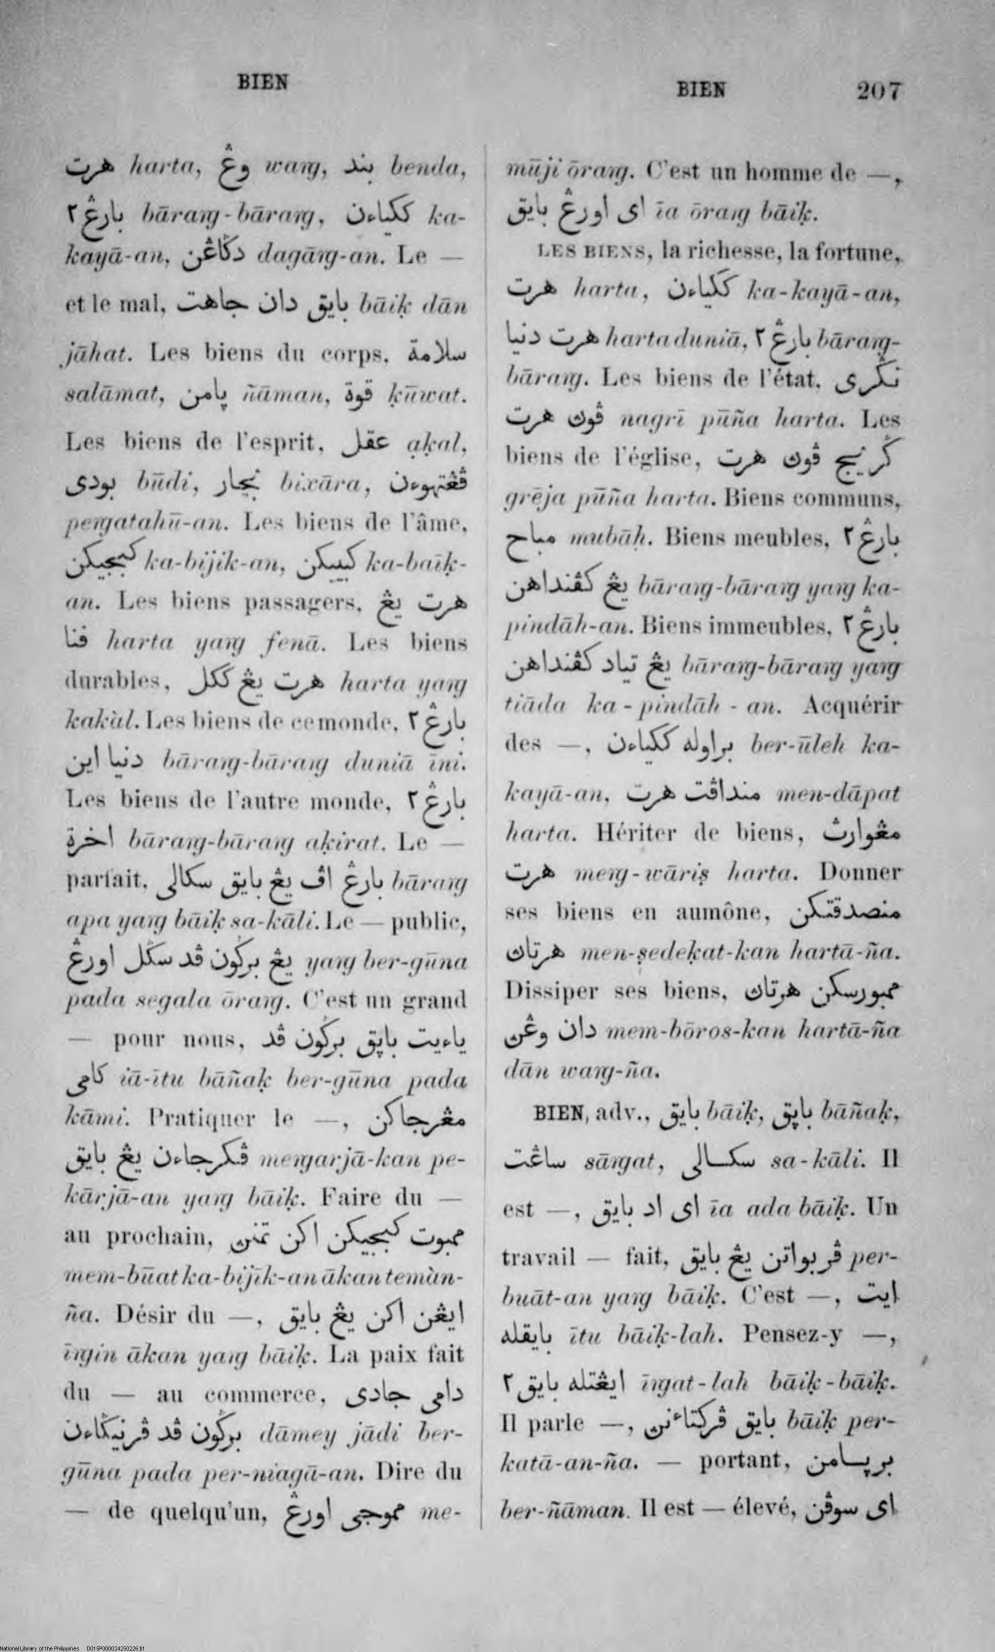 BIEN
هرت harta, وڠ waṙg, بند benda,
بارڠ ٢ bāraṙg-bāraṙg, ککياءن ka-
kayā-an, دݢاڠن dagāṙg-an. Le —
et le mal, بايق دان جاهت bāiḳ dān
jāhat. Les biens du corps, سلامة
salāmat, ڽامن ñāman, قوة ḳūwat.
Les biens de l'esprit, عقل aḳal,
بودى būdi, بچار bixāra, ڤڠتهوءن
peṙgatahū-an. Les biens de l'âme,
کبجيکن ka-bijik-an, کبيکن ka-baīḳ-
an. Les biens passagers, هرت يڠ
فنا harta yaṙg fenā. Les biens
durables, هرت يڠ ککل harta yaṙg
kakàl. Les biens de ce monde, بارڠ ٢
دنيا اين bāraṙg-bāraṙg duniā īni.
Les biens de l'autre monde, بارڠ ٢
اخرة bāraṙg-bāraṙg aḳirat. Le —
parfait, بارڠ اڤ يڠ بايق سکالى bāraṙg
apa yaṙg bāiḳ sa-kāli. Le — public,
يڠ برݢون ڤد سݢل اورڠ yaṙg ber-gūna
pada segala ōraṙg. C'est un grand
— pour nous, ياءيت باڽق برݢون ڤد
کامى iā-ītu bāñaḳ ber-gūna pada
kāmi. Pratiquer le —, مڠرجاکن
ڤکرجاءن يڠ بايق meṙgarjā-kan pe-
kārjā-an yaṙg bāiḳ. Faire du —
au prochain, ممبوت کبجيکن اکن تمنڽ
mem-būat ka-bijīk-an ākan temàn-
ña. Désir du —, ايڠن اکن يڠ بايق
īṙgin ākan yaṙg bāiḳ. La paix fait
du — au commerce, دامى جادى
برݢون ڤد ڤرنيݢاءن dāmey jādi ber-
gūna pada per-niagā-an. Dire du
— de quelqu'un, مموجى اورڠ me-
BIEN 207
mūji ōraṙg. C'est un homme de —,
اى اورڠ بايق īa ōraṙg bāiḳ.
LES BIENS, la richesse, la fortune,
هرت harta, ککياءن ka-kayā-an,
هرت دنيا harta duniā, بارڠ ٢ bāraṙg-
bāraṙg. Les biens de l'état, نݢرى
ڤوڽ هرت nagrī pūña harta. Les
biens de l'église, ݢريج ڤوڽ هرت
grēja pūña harta. Biens communs,
مباح mubāḥ. Biens meubles, بارڠ ٢
يڠ کڤنداهن bāraṙg-bāraṙg yaṙg ka-
pindāh-an. Biens immeubles, بارڠ ٢
يڠ تياد کڤنداهن bāraṙg-bāraṙg yaṙg
tiāda ka-pindāh-an. Acquérir
des —, براوله ککياءن ber-ūleh ka-
kayā-an, منداڤت هرت men-dāpat
harta. Hériter de biens, مڠوارث
هرت meṙg-wāriṣ harta. Donner
ses biens en aumône, منصدقتکن
هرتاڽ men-ṣedeḳat-kan hartā-ña.
Dissiper ses biens, ممبورسکن هرتاڽ
دان وڠڽ mem-bōros-kan hartā-ña
dān waṙg-ña.
BIEN, adv., بايق bāiḳ, باڽق bāñaḳ,
ساڠت sāṙgat, سکالى sa-kāli. Il
est —, اى اد بايق īa ada bāiḳ. Un
travail — fait, ڤربواتن يڠ بايق per-
buāt-an yaṙg bāiḳ. C'est —, ايت
بايقله ītu bāiḳ-lah. Pensez-y —,
ايڠتله بايق ٢ īṙgat-lah bāiḳ-bāiḳ.
Il parle —, بايق ڤرکتاءنڽ bāiḳ per-
katā-an-ña. — portant, برڽامن
ber-ñāman. Il est — élevé, اى سوڤن
National Library of the Philippines